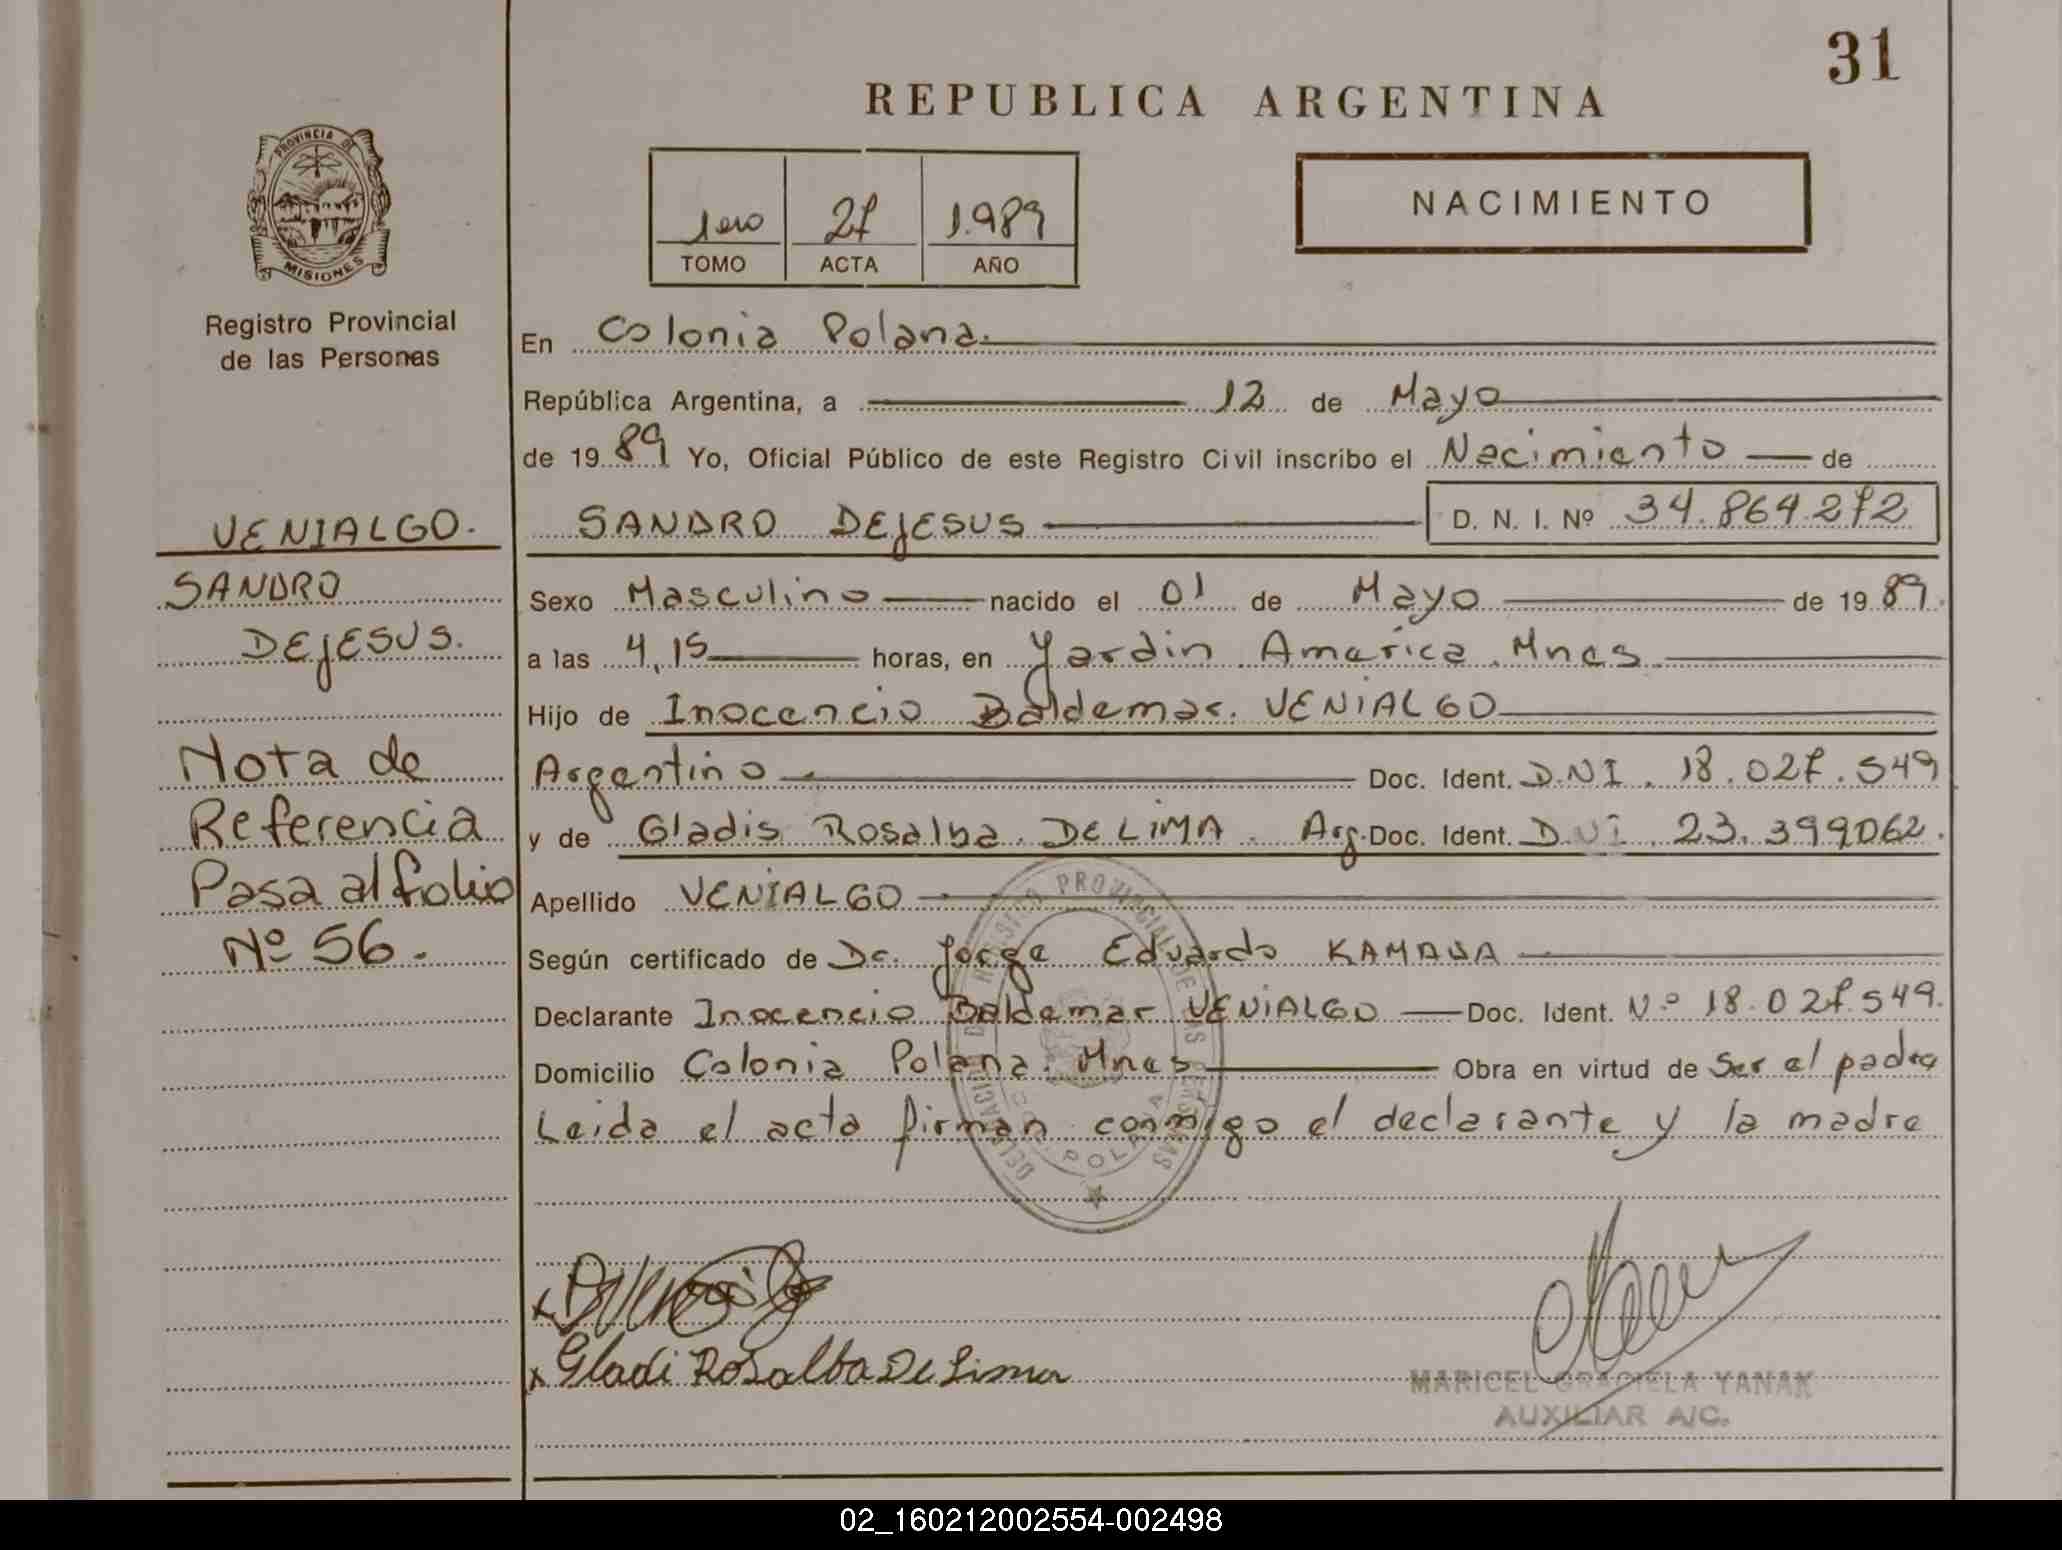 31
REPUBLICA ARGENTINA
PROVINCIA DE
MISIONES
Registro Provincial
de las Personas
1ero 27 1.989
TOMO ACTA AÑO
NACIMIENTO
En Colonia Polana.
República Argentina, a 12 de Mayo
de 1989 Yo, Oficial Público de este Registro Civil inscribo el Nacimiento de
SANDRO DEJESUS D. N. I. Nº 34.864.272
Sexo Masculino nacido el 01 de Mayo de 1989.
a las 4,15 horas, en Yardin America. Mnes
Hijo de Inocencio Baldemar. VENIALGO
Argentino Doc. Ident. D.NI. 18.027.549
y de Gladis Rosalba. DE LIMA. Arg. Doc. Ident. D.NI. 23.399062.
Apellido VENIALGO
Según certificado de Dr. Jorge Eduardo
Declarante Inocencio Baldemar VENIALGO Doc. Ident. Nº 18.027.549.
Domicilio Colonia Polana. Mnes Obra en virtud de Ser el padre
Leida el acta firman conmigo el declarante y la madre
VENIALGO.
SANDRO
DEJESUS.
Nota de
Referencia
Pasa al folio
Nº 56.
DELEGACION DE REGISTRO PROVINCIAL DE LAS PERSONAS
COL. POLANA
x Gladi Rosalba De Lima
MARICEL GRACIELA YANAK
AUXILIAR A/C.
02_160212002554-002498